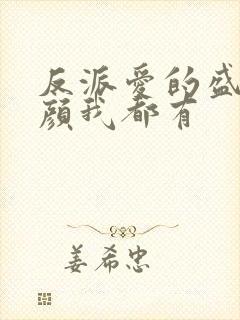 反派爱的盛
颜我都有
姜希忠